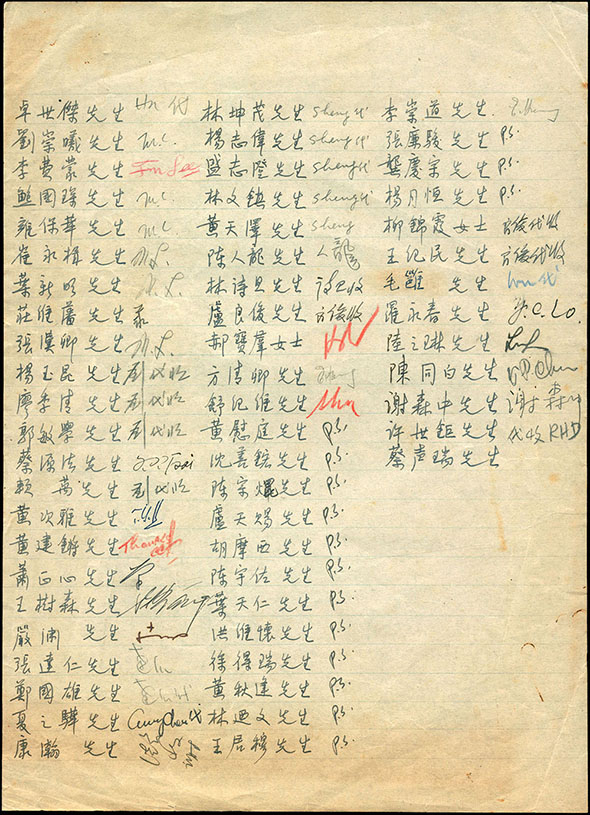 卓世傑先生 Hu 代
劉崇曦先生 W.L.
李費蒙先生
鮑國琛先生 W.L.
雍保華先生
崔永楫先生 W.L.
葉新明先生 W.L.
莊維藩先生
張漢卿先生 W.L.
楊玉昆先生 劉代收
廖季清先生 劉代收
郭敏學先生 劉代收
蔡須法先生
顧 萬先生 劉代收
黃次雅先生
黃建鏘先生
蕭正心先生
王樹森先生
嚴 溯 先生
張達仁先生
鄭國雄先生
夏之驊先生
康 瀚 先生
林坤茂先生 Sheng代
楊志偉先生 Sheng代
盛志陞先生 Sheng代
林文鎮先生 Sheng代
黃天澤先生 Sheng
陳人龍先生 人龍
林詩旦先生
盧良俊先生 代收
郝寶羣女士
方清卿先生
舒紀維先生
黃慰庭先生 P.S.
沈善鋐先生 P.S.
陳宗焜先生 P.S.
盧天煬先生 P.S.
胡摩西先生 P.S.
陳宇佐先生 P.S.
葉天仁先生 P.S.
洪維懷先生 P.S.
徐得瑞先生 P.S.
黃秋逢先生 P.S.
林迺文先生 P.S.
王居穆先生 P.S.
李崇道先生
張廉駿先生 P.S.
龔慶宗先生 P.S.
楊月恒先生 P.S.
柳錦霞女士 代收
王紀民先生 代收
毛雝 先生
羅永春先生 Y.C. Lo.
陸之琳先生
陳同白先生
謝森中先生 謝森中
許世鉅先生 代收 RHD
蔡声瑞先生